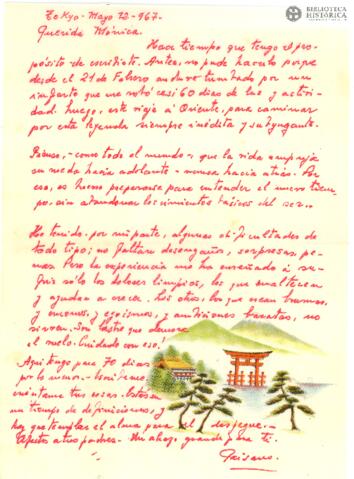 BIBLIOTECA
HISTÓRICA
Tokyo - Mayo 12-967.
Querida Mónica.
Hace tiempo que tengo el pro-
pósito de escribirte. Antes, no pude hacerlo porque
desde el 21 de Febrero anduve tumbado por un
infarto que me restó casi 60 días de luz y activi-
dad. Luego, este viaje a Oriente, para caminar
por esta leyenda siempre inédita y subyugante.
Pienso, - como todo el mundo - que la vida empuja
su rueda hacia adelante - nunca hacia atrás. Por
eso, es bueno prepararse para entender el nuevo tiem-
po, sin abandonar los cimientos básicos del ser..
He tenido por mi parte, algunas dificultades de
todo tipo; no faltan desengaños, sorpresas, pe-
nas. Pero la experiencia me ha enseñado a su-
frir solo los dolores limpios, los que enaltecen
y ayudan a crecer. Los otros, los que crean brumas,
y enconos, y egoísmos, y ambiciones baratas, no
sirven. Son lastre que demora
el vuelo. Cuidado con eso!
Aquí tengo para 70 días
por lo menos. Escríbeme,
cuéntame tus cosas. Estás en
un tiempo de definiciones, y
hay que templar el alma para el despegue.-
Afectos a tus padres - Un abrazo grande para ti.
Paisano.